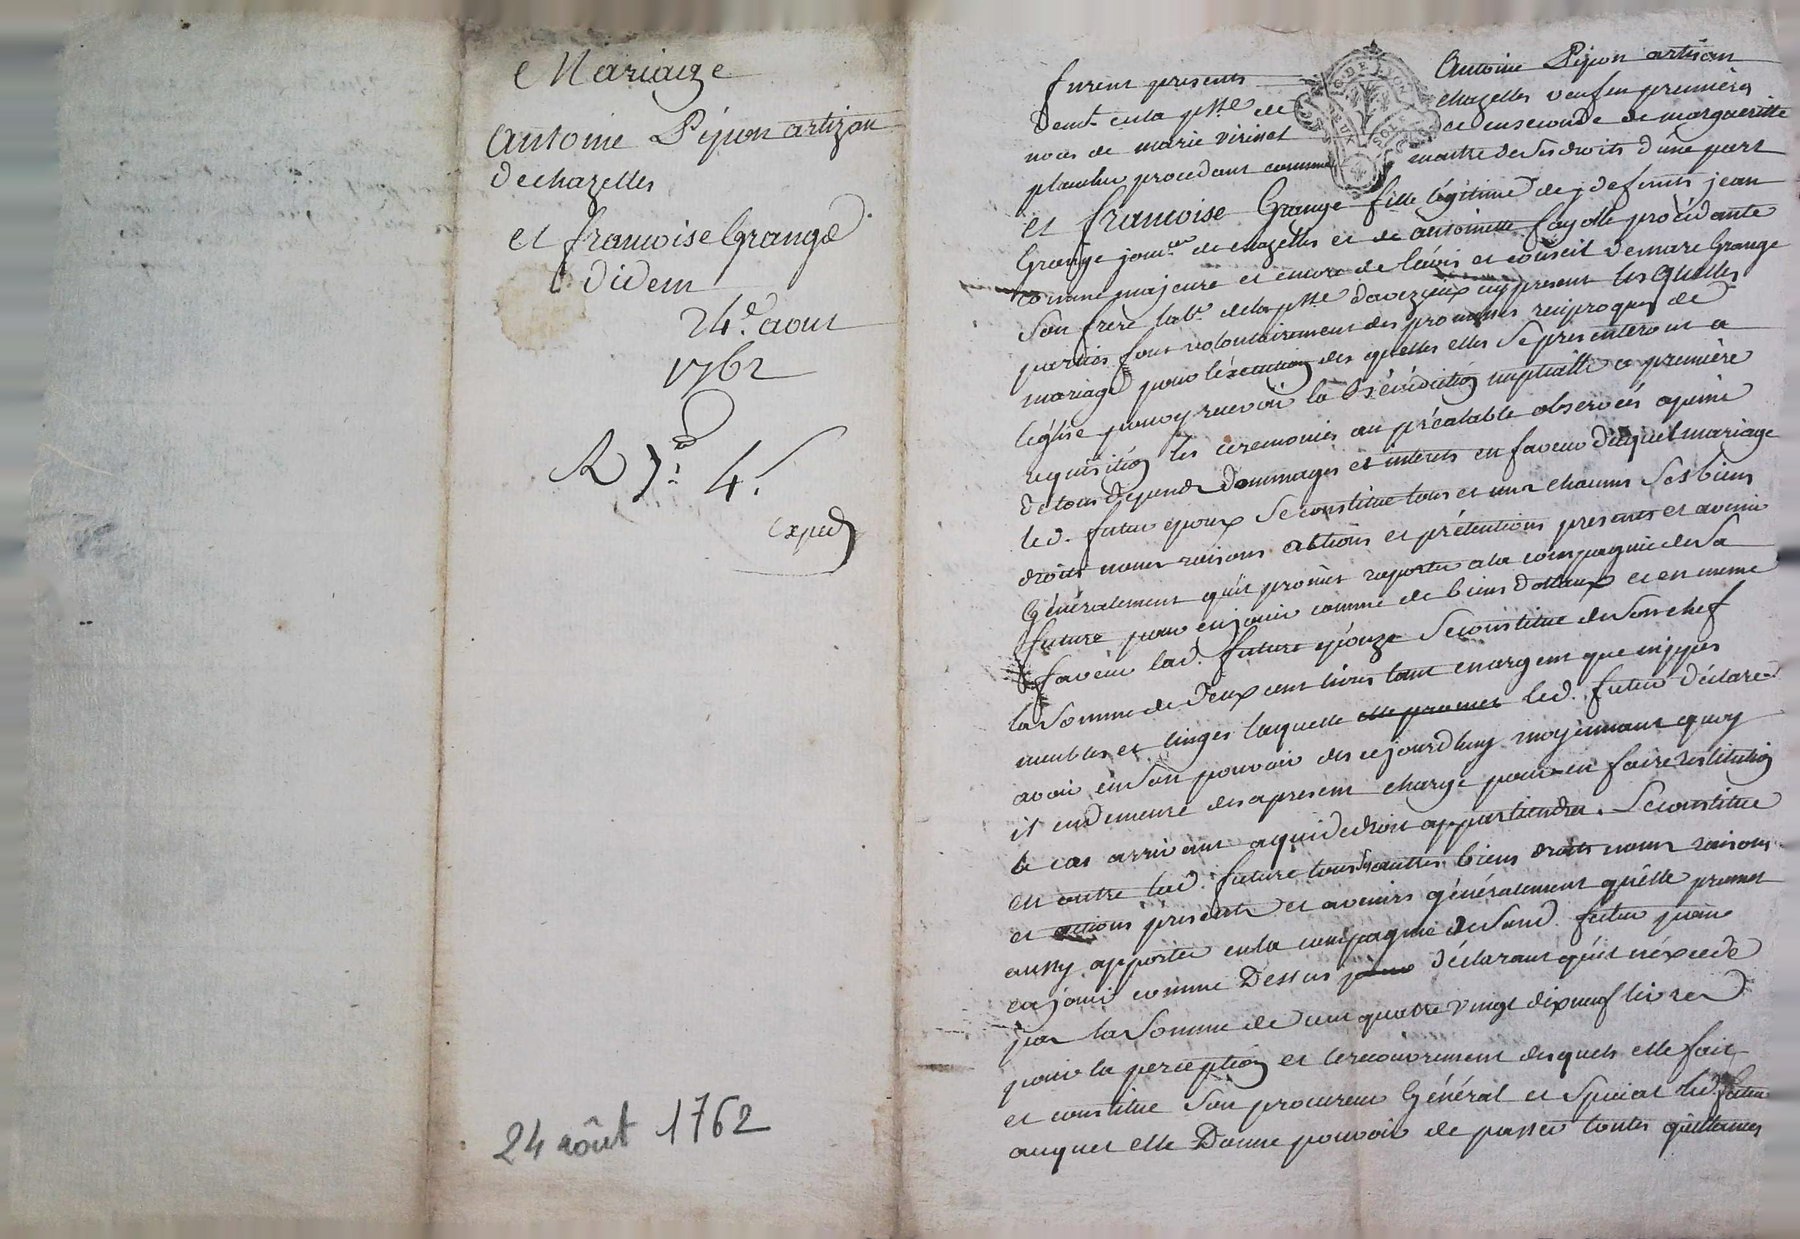 Mariage
Antoine Pipon artizan
de chazelles
et francoise Grange
didem
24e. aout
1762
R 7. 4.
Exped
24 aôut 1762
furent presents Antoine Pipon artisan
demt. en la psse de chazelles veuf en premieres
noces de marie virinet et en seconde de margueritte
planchu procedant comme maitre de ses droits d'une part
et francoise Grange fille légitime de defunts jean
Grange jour.er de chazelles et de antoinette fayolle procedante
comme majeure et encore de l'avis et conseil de mare Grange
son frere lab.r de la psse d'avezieux icy present les quelles
parties font volontairement des promesses reciproques de
mariage pour l'execution des quelles elles se presenteront a
l'eglise pour y recevoir la Bénédiction nuptialle a premiere
requisition les ceremonies au préalable observées a peine
de tous depends dommages et interets en faveur duquel mariage
led. futur epoux se constitue tous et uns chacuns ses biens
droits noms raisons actions et prétentions presents et avenir
Généralement qu'il promet raporter a la compagnie de sa
future pour en jouir comme de biens dottaux et en meme
faveur lad. future epouze se constitue de son chef
la somme de deux cent livres tant en argent que en jypes
meubles et linges laquelle elle promet led. futur déclare
avoir en son pouvoir des ce jourdhuy moyennant quoy
il en demeure des a present chargé pour en faire restitution
le cas arrivant a qui de droit appartiendra. Se constitue
en outre lad. future tous ses autres biens droits noms raisons
et actions présents et avenirs généralement qu'elle promet
aussy apporter en la compagnie de sond. futur pour
en jouir comme Dessus pour déclarant qu'il n'éxcede
pas la somme de cent quatre vingt dix neuf livres
pour la perception et le recouvrement desquels elle fait
et constitue son procureur Général et Spécial led. futur
auquel elle Donne pouvoir de passer toutes quittances